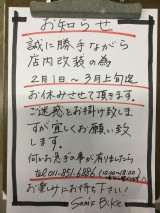 お知らせ
誠に勝手ながら
店内改装の為
2月1日〜3月上旬迄
お休みさせて頂きます。
ご迷惑をお掛け致し
ますが宜しくお願い致
します。
何かお急ぎの事が有りましたら
TEL 011-851-6886 (10:30〜18:00)
お楽しみにお待ち下さい
Sam's Bike